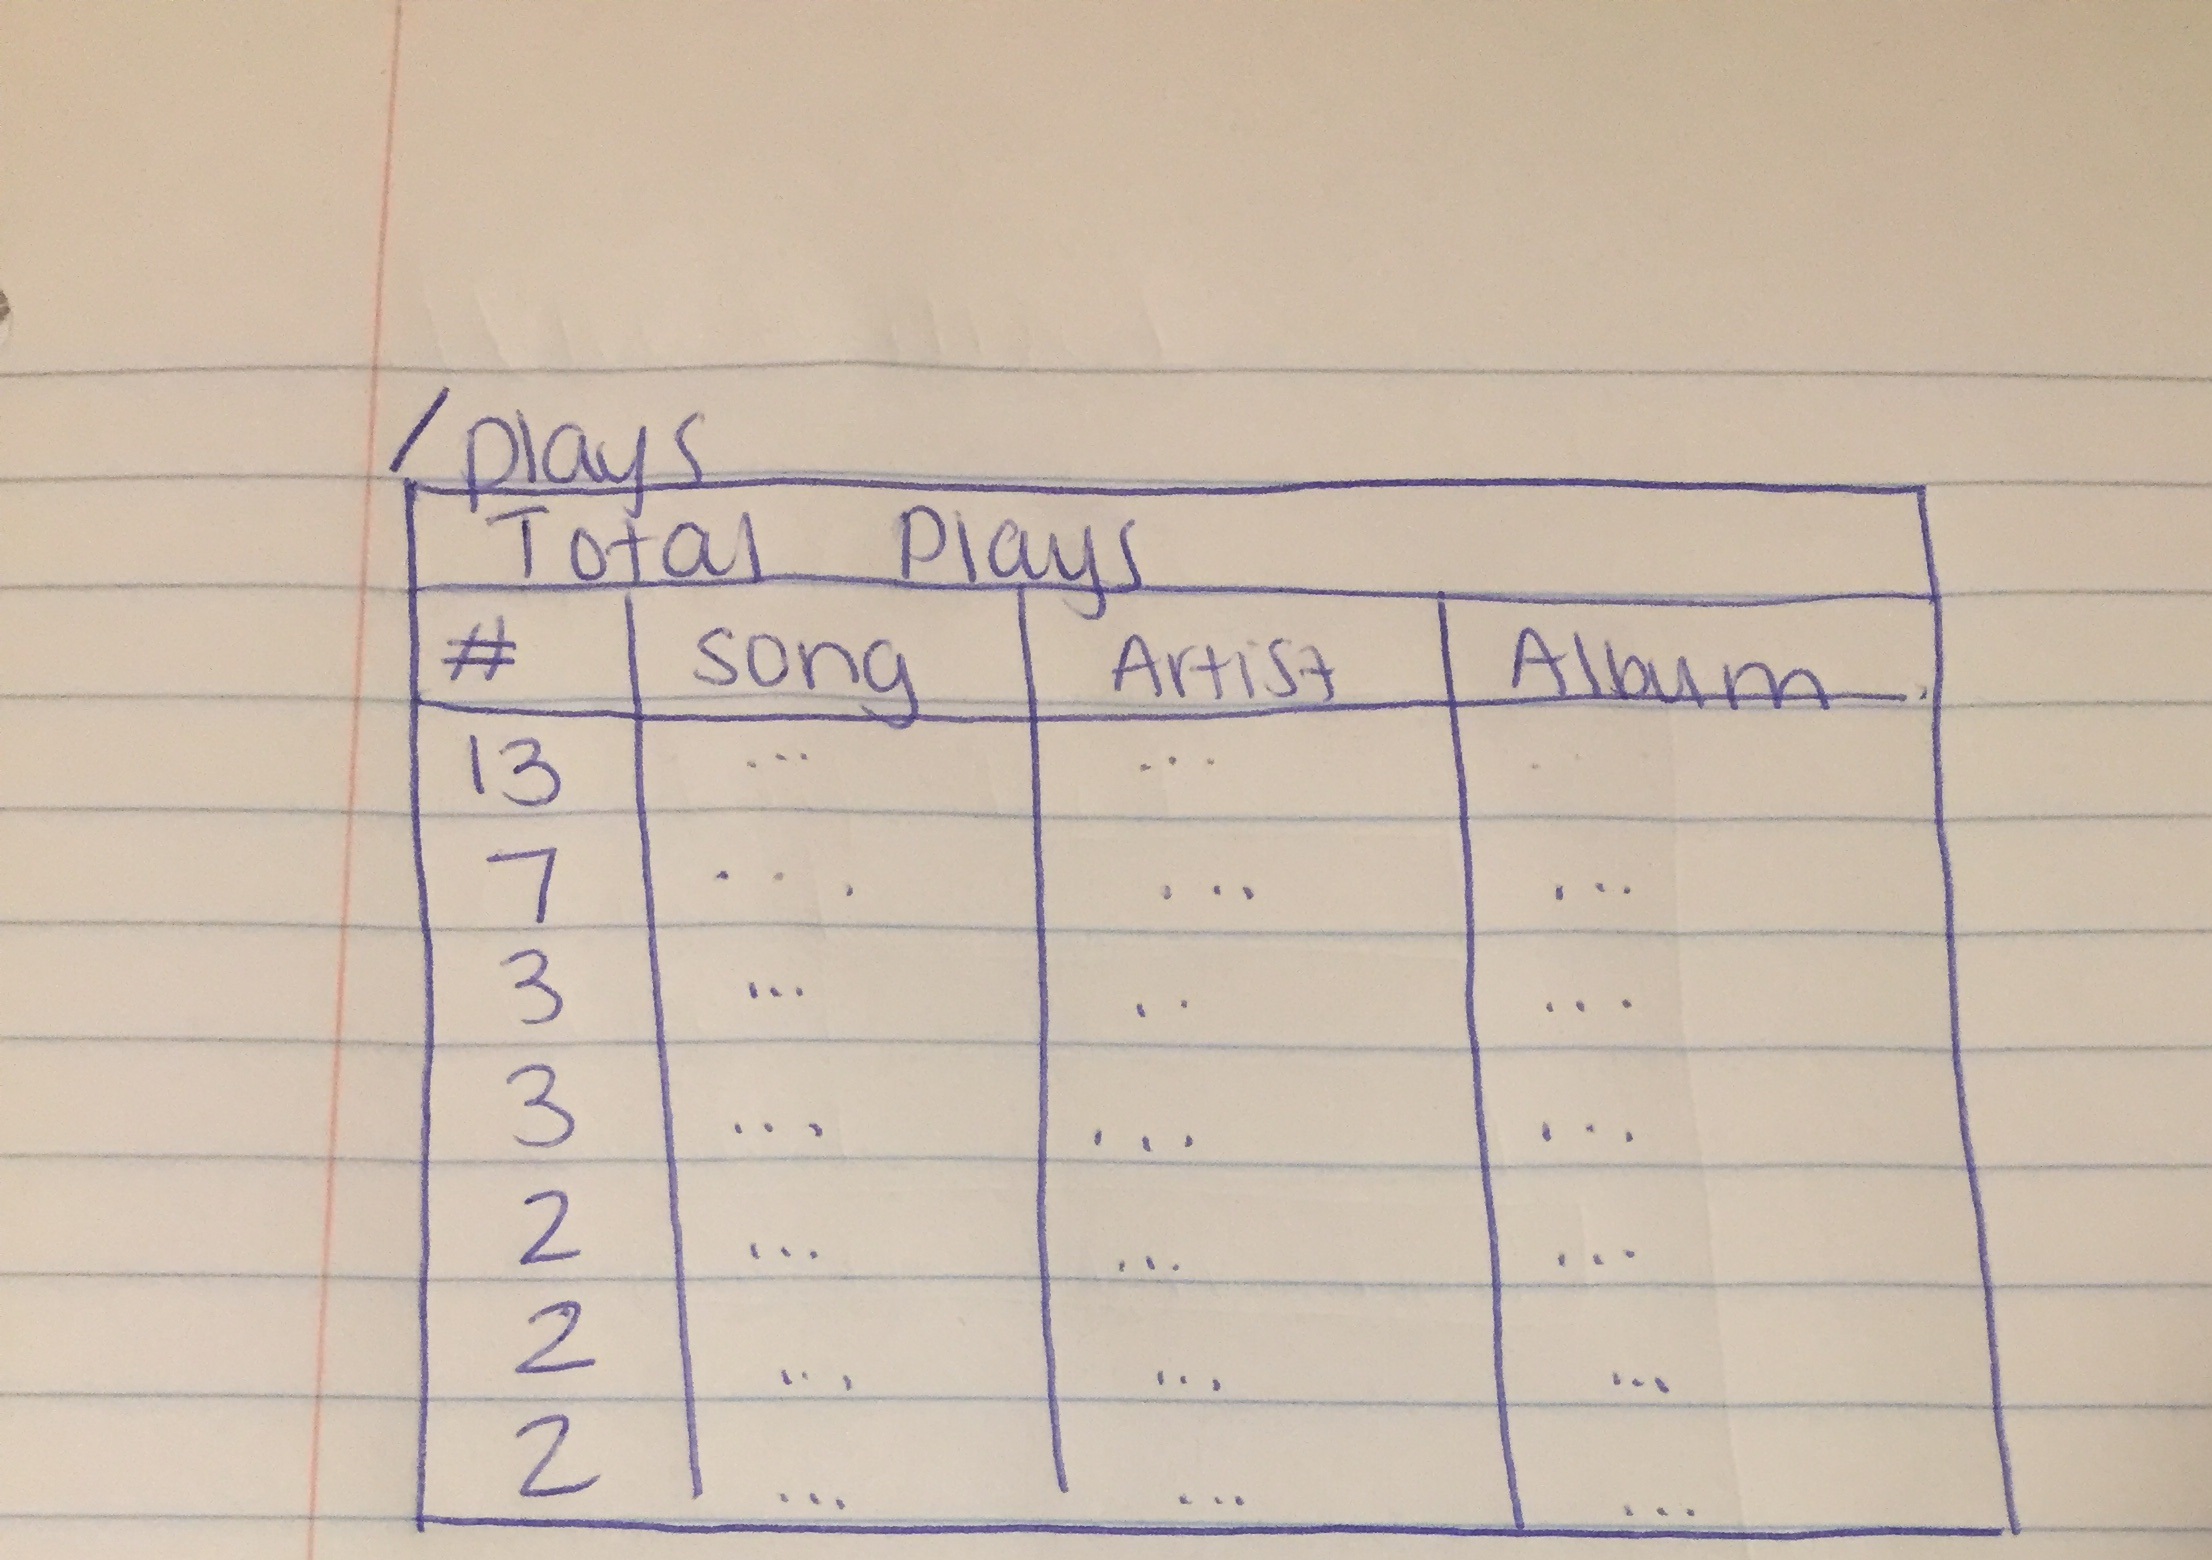 /plays
Total Plays
# Song Artist Album
13 ... ... ...
7 ... ... ...
3 ... .. ...
3 ... ... ...
2 ... ... ...
2 ... ... ...
2 ... ... ...